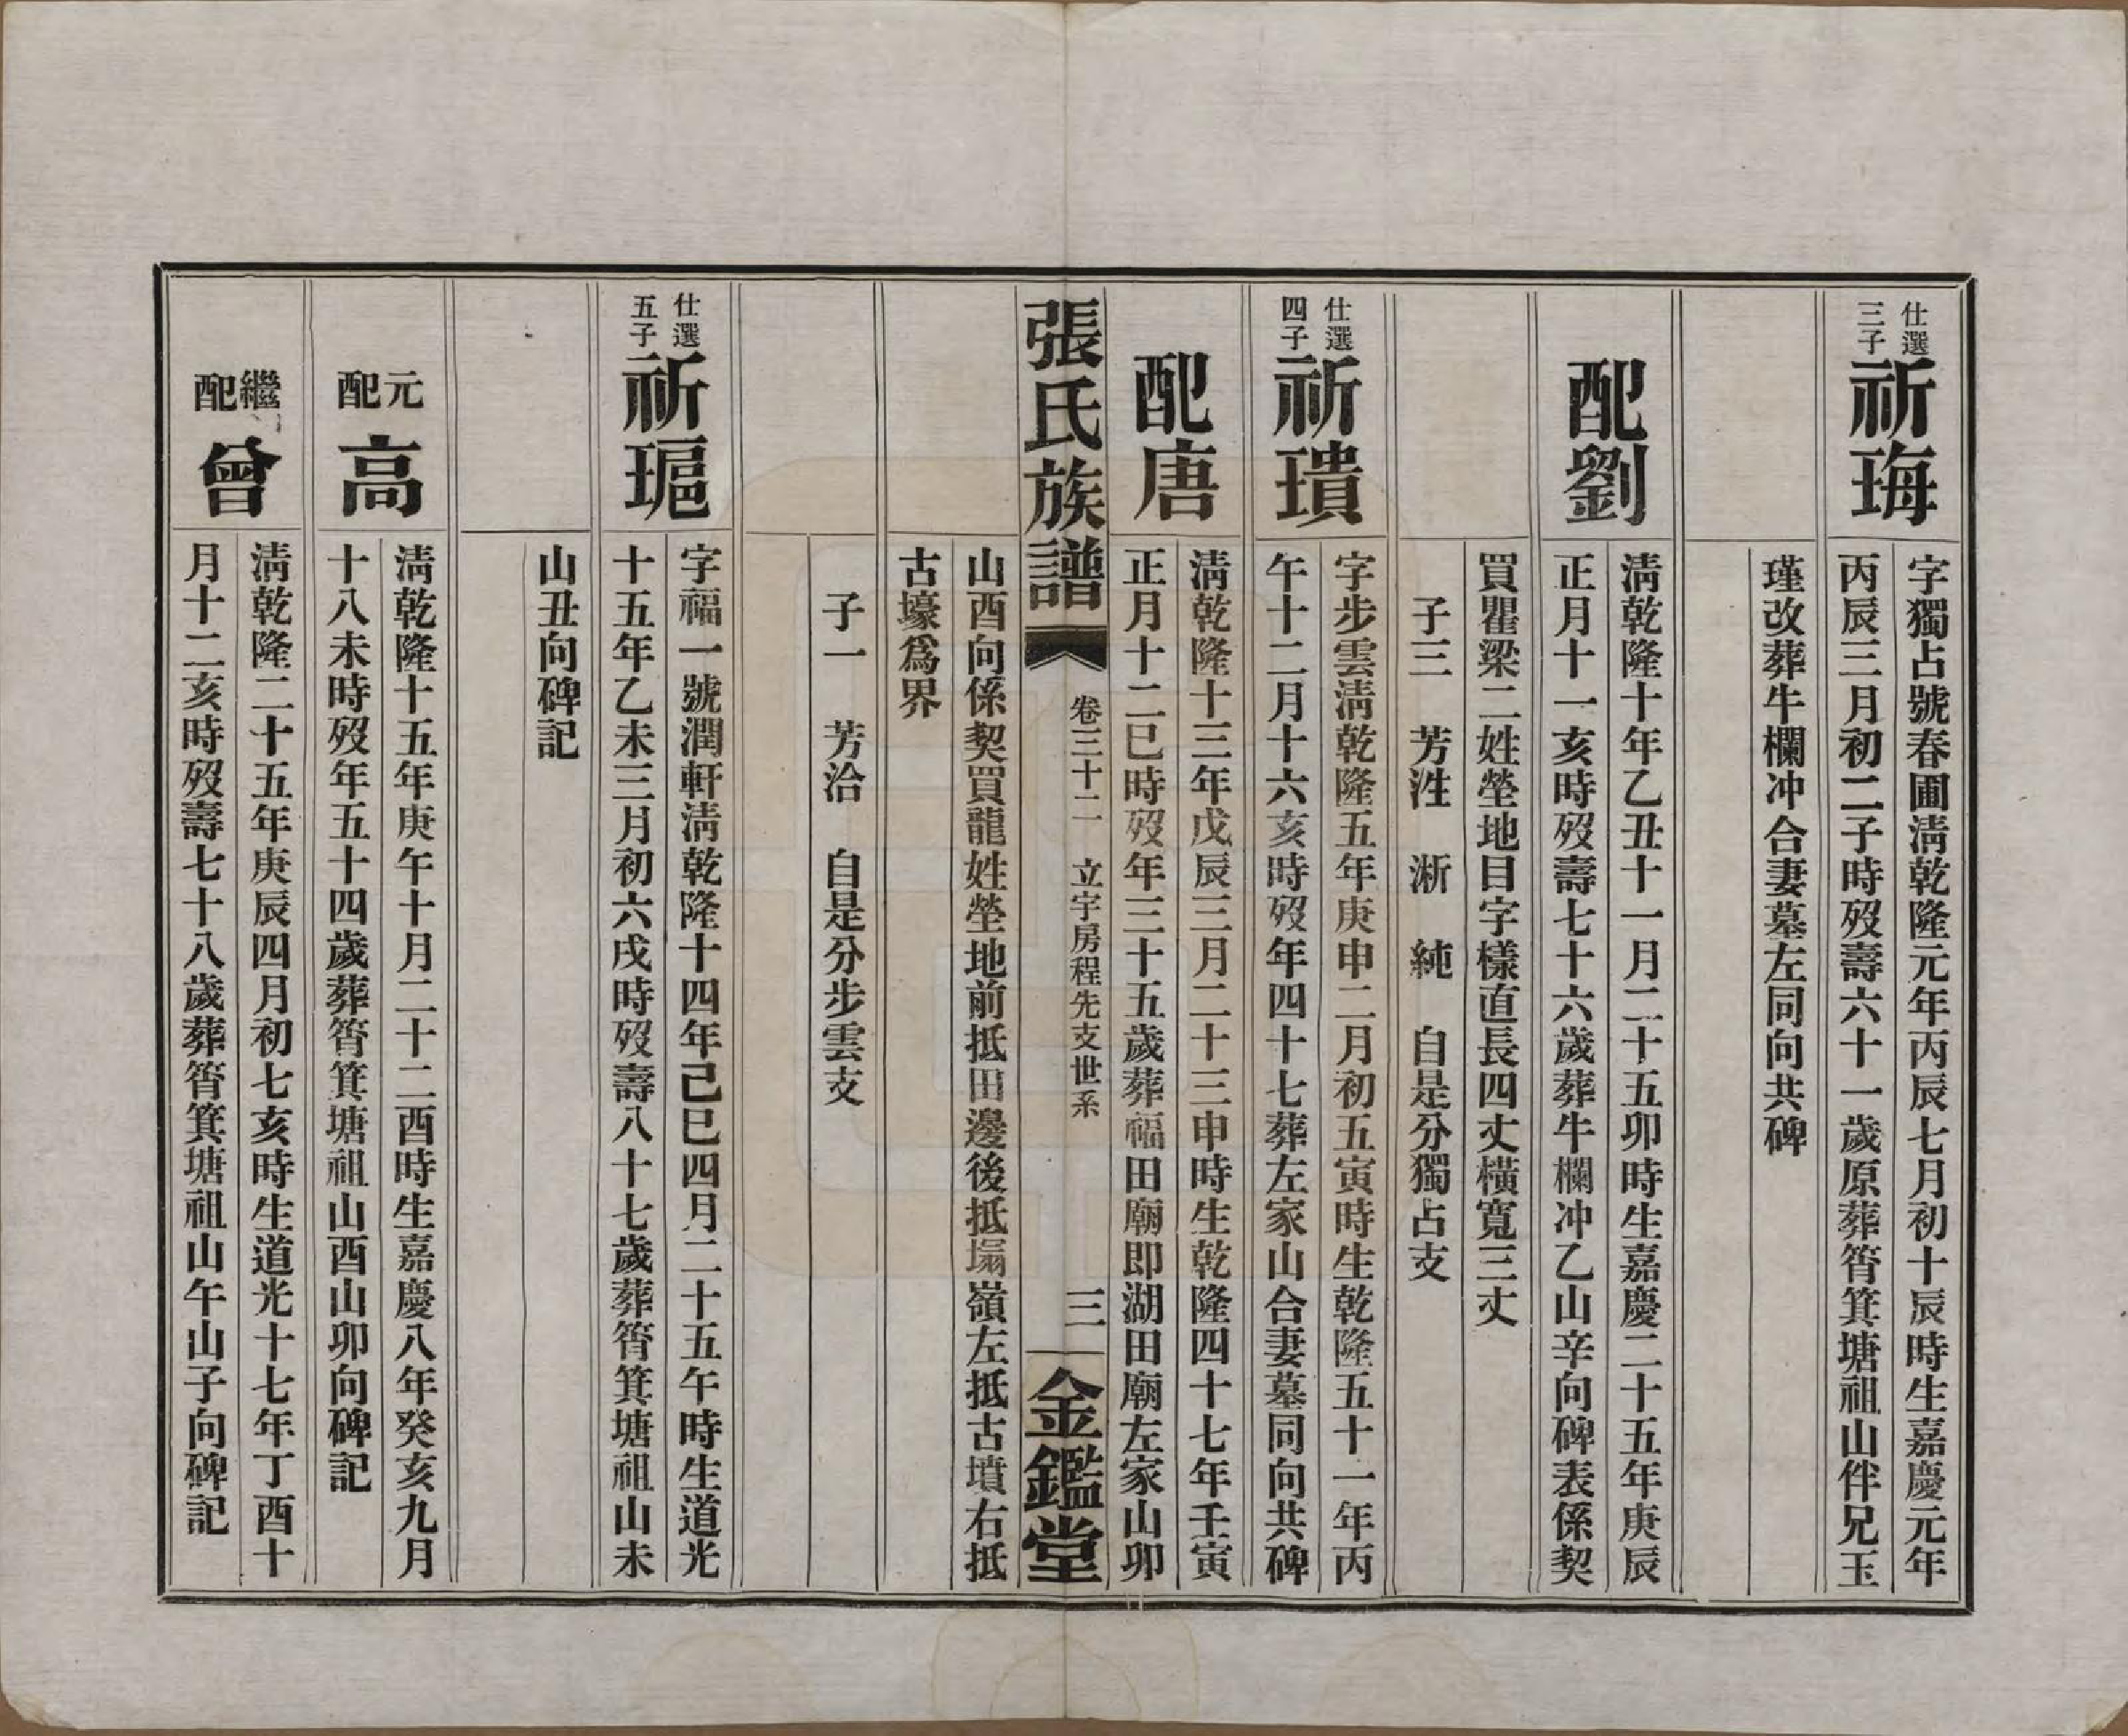 仕選
三子
祈珻
字獨占號春圃淸乾隆元年丙辰七月初十辰時生嘉慶元年
丙辰三月初二子時歿壽六十一歲原葬筲箕塘祖山伴兄玉
瑾改葬牛欄冲合妻墓左同向共碑
配劉
淸乾隆十年乙丑十一月二十五卯時生嘉慶二十五年庚辰
正月十一亥時歿壽七十六歲葬牛欄冲乙山辛向碑表係契
買瞿梁二姓塋地目字樣直長四丈橫寬三丈
子三 芳泩 淅 純 自是分獨占支
仕選
四子
祈璝
字步雲淸乾隆五年庚申二月初五寅時生乾隆五十一年丙
午十二月十六亥時歿年四十七葬左家山合妻墓同向共碑
配唐
淸乾隆十三年戊辰三月二十三申時生乾隆四十七年壬寅
正月十二巳時歿年三十五歲葬福田廟即湖田廟左家山卯
張氏族譜
卷三十二 立宇房程先支世系
三
金鑑堂
山酉向係契買龍姓塋地前抵田邊後抵塌嶺左抵古墳右抵
古壕爲界
子一 芳治 自是分步雲支
仕選
五子
祈琩
字福一號潤軒淸乾隆十四年己巳四月二十五午時生道光
十五年乙未三月初六戌時歿壽八十七歲葬筲箕塘祖山未
山丑向碑記
元配
高
淸乾隆十五年庚午十月二十二酉時生嘉慶八年癸亥九月
十八未時歿年五十四歲葬筲箕塘祖山酉山卯向碑記
繼配
曾
淸乾隆二十五年庚辰四月初七亥時生道光十七年丁酉十
月十二亥時歿壽七十八歲葬筲箕塘祖山午山子向碑記